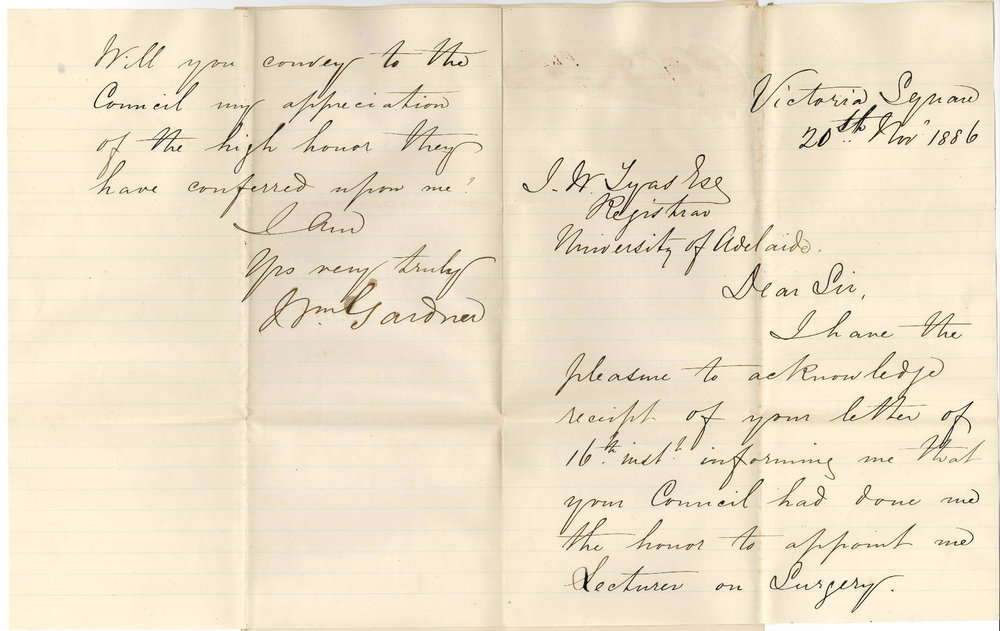 Victoria Square
20th Nov 1886
J. W. Tyas Esq
Registrar
University of Adelaide.
Dear Sir,
I have the
pleasure to acknowledge
receipt of your letter of
16th inst informing me that
your Council had done me
the honor to appoint me
Lecturer on Surgery.
Will you convey to the
Council my appreciation
of the high honor they
have conferred upon me?
I am
Yrs very truly
Wm Gardner